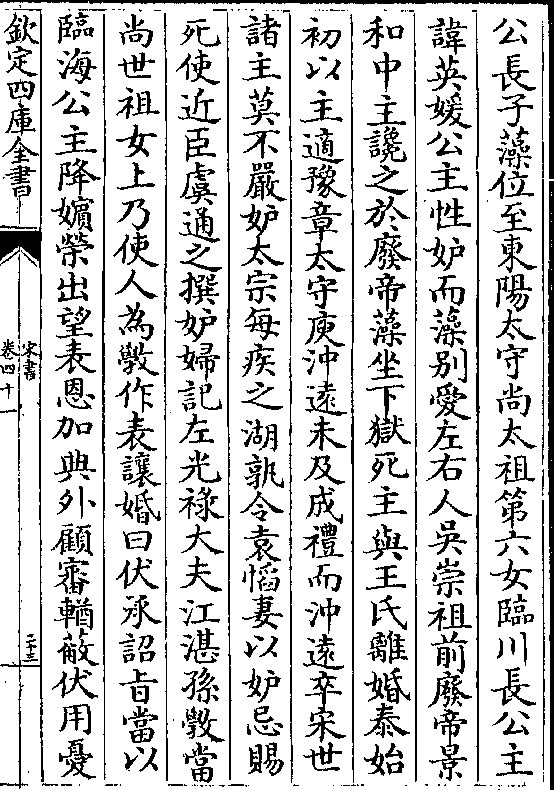 公長子藻位至東陽太守尚太祖第六女臨川長公主
諱英媛公主性妒而藻别愛左右人吳崇祖前廢帝景
和中主讒之於廢帝藻坐下獄死主與王氏離婚泰始
初以主適豫章太守庾沖遠未及成禮而沖遠卒宋世
諸主莫不嚴妒太宗每疾之湖孰令袁慆妻以妒忌賜
死使近臣虞通之撰妒婦記左光祿大夫江湛孫斆當
尚世祖女上乃使人為斆作表讓婚曰伏承詔旨當以
臨海公主降嬪榮出望表恩加典外顧審輶蔽伏用憂
欽定四庫全書
宋書
卷四十一
二十三